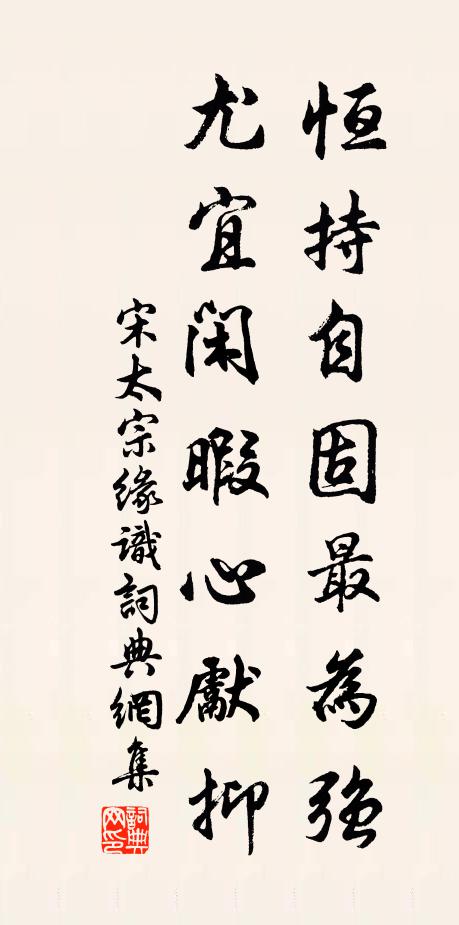 恒持自固最為強
尤宜閑暇心獻抑
宋太宗緣識詞典網集
詞典
网印